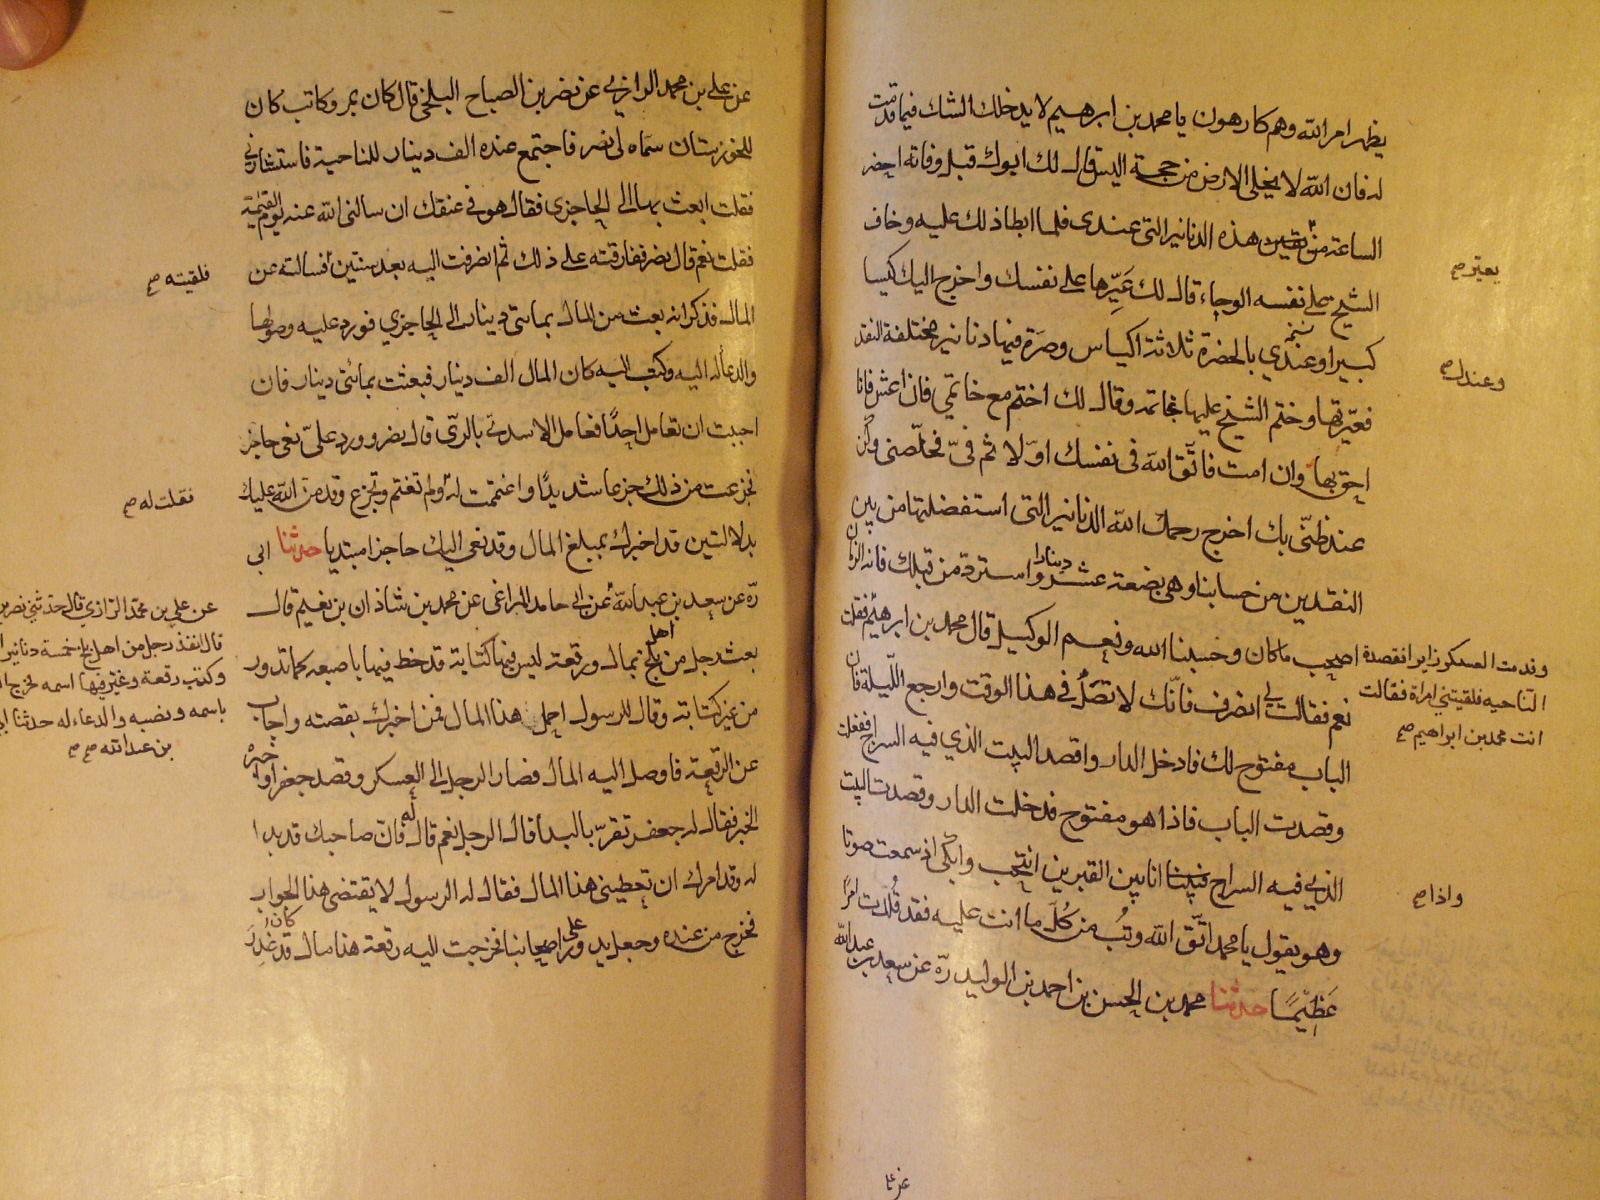 يظهر امر الله وهم كارهون يا محمد بن ابرهيم لا يدخلك الشك فيما قدمت
له فان الله لا يخلى الارض من حجة اليس قال لك ابوك قبل وفاته احضر
الساعة من يعير هذه الدنانير التى عندى فلما ابطا ذلك عليه وخاف
الشيخ على نفسه الوحاء قال لك عَيِّرها على نفسك واخرج اليك كيسا
كبيرا وعندى بالحضرة ثلاثة اكياس وصرّة فيها دنانير مختلفة النقد
فعيّرتها وختم الشيخ عليها بخاتمه وقال لك اختم مع خاتمي فان اعش فانا
احق بها وان امت فاتّق الله فى نفسك اوّلا ثم فىّ فخلّصنى وكن
عند ظنّى بك اخرج رحمك الله الدنانير التى استفضلتها من بين
النقدين من حسابنا وهى بضعة عشر دينارا واسترد من قبلك فان الزمان
اصعب ما كان وحسبنا الله ونعم الوكيل قال محمد بن ابرهيم فقلت
نعم فقالت لى انصرف فانّك لا تصل فى هذا الوقت وارجع اللّيلة فان
الباب مفتوح لك فادخل الدار واقصد البيت الذي فيه السراج ففعلت
وقصدت الباب فاذا هو مفتوح فدخلت الدار وقصدت البيت
الذي فيه السراج فبينا انا بين القبرين انتحب وابكى اذ سمعت صوتا
وهو يقول يا محمد اتّق الله وتُب من كلّ ما انت عليه فقد قُلّدت امرًا
عَظِيمًا حدثنا محمد بن الحسن بن احمد بن الوليد رّه عن سعد بن عبد الله
يعيّر صح
وعندك صح
وقدمت العسكر زايرا فقصدة
الناحيه فلقيتني امراة فقالت
انت محمد بن ابراهيم صح
واذا صح
عن على بن محمد الرازي عن نصر بن الصباح البلخى قال كان بمرو كاتب كان
للخوزستان سماه لى نصر فاجتمع عنده الف دينار للناحية فاستشارنى
فقلت ابعث بها الى الحاجزي فقال هو فى عنقك ان سالنى الله عنه يوم القيمة
فقلت نعم قال نصر ففارقته على ذلك ثم انصرفت اليه بعد سنتين فسالته عن
المال فذكر انه بعث من المال بماتى دينار الى الحاجزي فورد عليه وصولها
والدعاء له اليه وكتب اليه كان المال الف دينار فبعثت بمائتى دينار فان
احببت ان تعامل احدًا فعامل الاسدى بالرىّ قال نصر وورد علىّ نعى حاجز
فجزعت من ذلك جزعا شديدًا واغتممت له ولم تغتم وتجزع وقد منّ الله عليك
بدلالتين قد اخبرك بمبلغ المال وقد نعى اليك حاجزا مبتديا حدثنا ابى
رّه عن سعد بن عبد الله عن ابى حامد المراغى عن محمد بن شاذان بن نعيم قال
بعث رجل من اهل بلخ بمال ورقعة ليس فيها كتابة قد خط فيها باصبعه كما تدور
من غير كتابة وقال للرسول احمل هذا المال فمن اخبرك بقصته واجاب
عن الرقعة فاوصل اليه المال فصار الرجل الى العسكر وقصد جعفرا واخبره
الخبر فقال له جعفر تقرّ بالبدأ قال الرجل نعم قال له فان صاحبك قد بدا
له وقد امرك ان تعطينى هذا المال فقال له الرسول لا يقنعنى هذا الجواب
فخرج من عنده وجعل يدور على اصحابنا فخرجت اليه رقعة هذا مال كان قد غدر
فلقيته صح
فقلت له صح
عن على بن محمّد الرازي قال حدثنى نصر بن
قال انفذ رجل من اهل بلخ خمسة دنانير
وكتب رقعة وغيّر فيها اسمه فخرج
باسمه ونسبه والدعاء له حدثنا
بن عبد الله صح صح